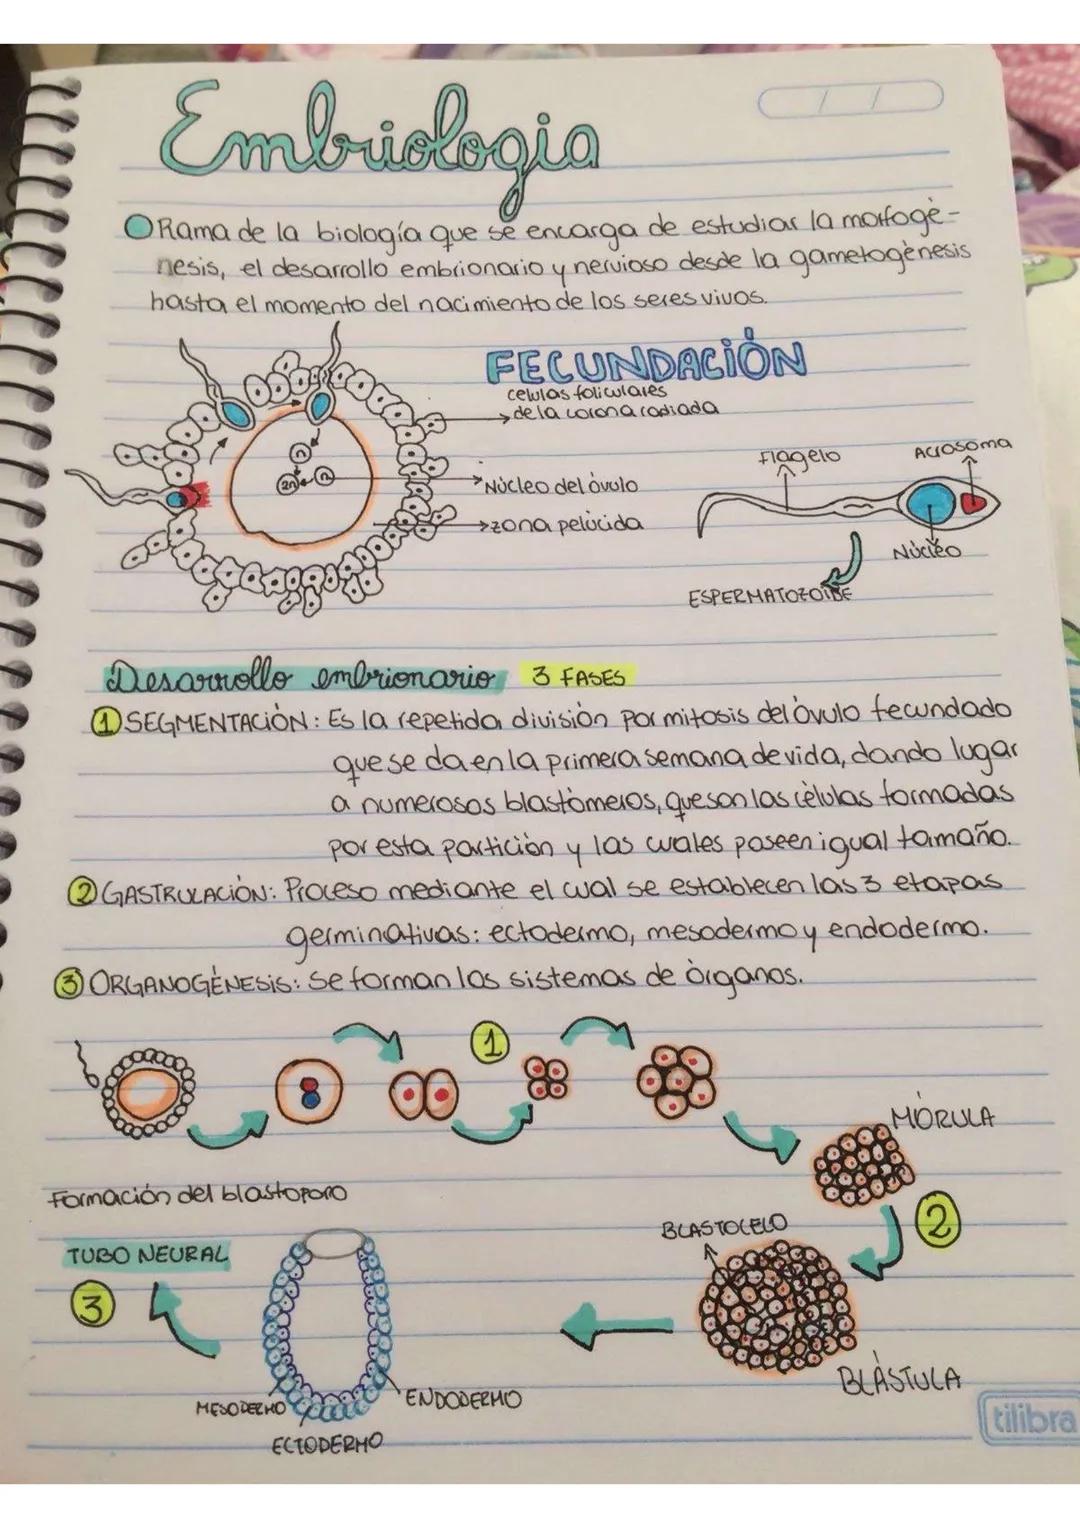 Embriologia
Rama de la biología que se encarga de estudiar la morfogé-
nesis, el desarrollo embrionario y nervioso desde la gametogénesis
hasta el momento del nacimiento de los seres vivos.
FECUNDACIÓN
celulas foliculares
de la corona radiada
Núcleo del óvulo
zona pelúcida
n
n
2n
Flagelo
Acrosoma
Núcleo
ESPERMATOZOIDE
Desarrollo embrionario 3 FASES
1 SEGMENTACIÓN: Es la repetida división por mitosis del óvulo fecundado
que se da en la primera semana de vida, dando lugar
a numerosos blastómeros, que son las células formadas
por esta partición y las cuales poseen igual tamaño.
2 GASTRULACIÓN: Proceso mediante el cual se establecen las 3 etapas
germinativas: ectodermo, mesodermo y endodermo.
3 ORGANOGÉNESIS: Se forman los sistemas de órganos.
1
MÓRULA
Formación del blastoporo
2
BLASTOCELO
TUBO NEURAL
3
BLÁSTULA
MESODERMO
ENDODERMO
ECTODERMO
tilibra